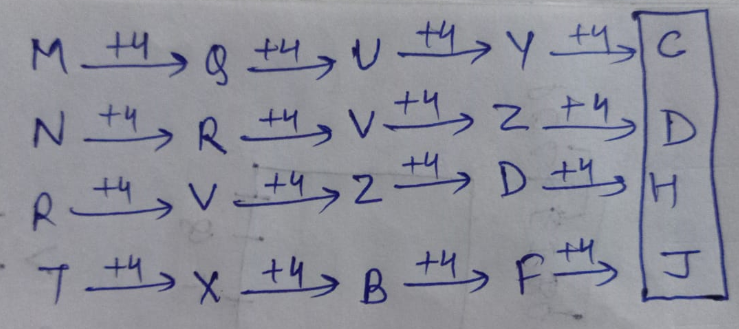 M +4→ Q +4→ U +4→ Y +4→ C
N +4→ R +4→ V +4→ Z +4→ D
R +4→ V +4→ Z +4→ D +4→ H
T +4→ X +4→ B +4→ F +4→ J